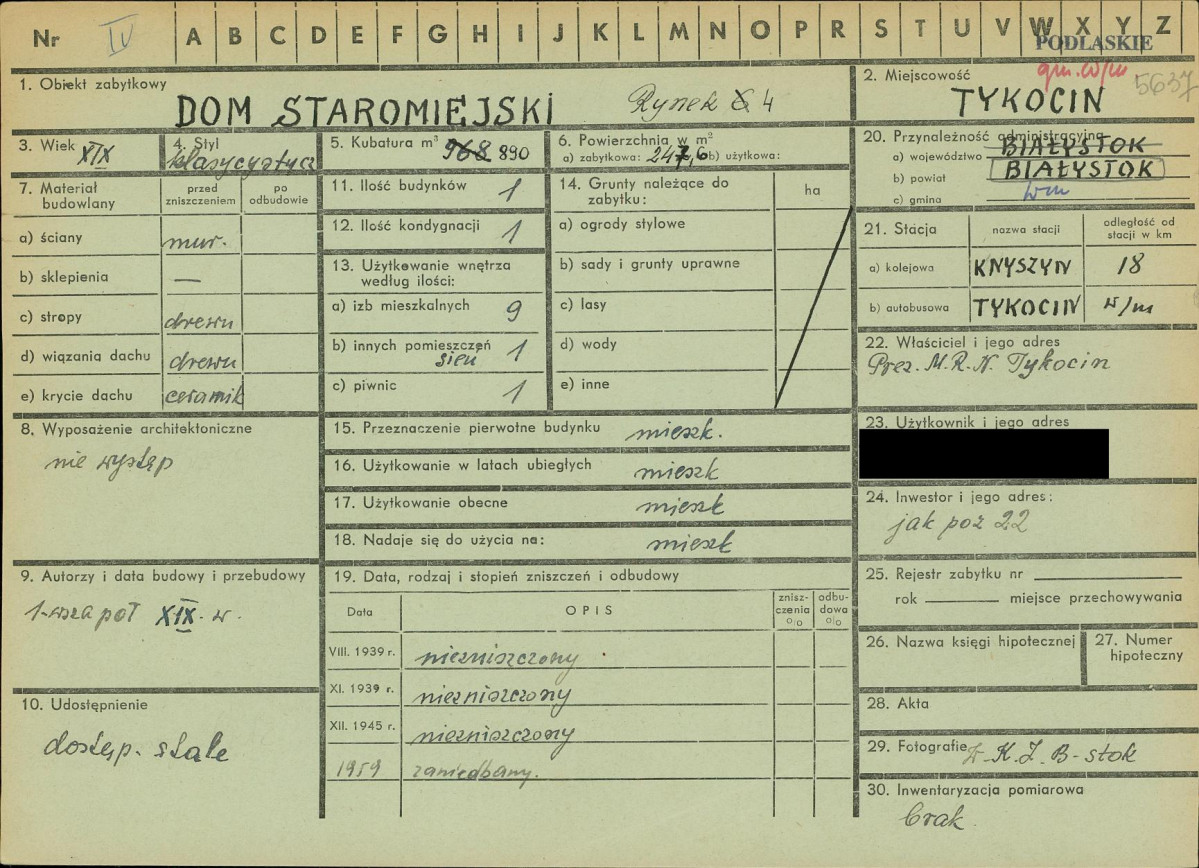 Nr IV A B C D E F G H I J K L M N O P R S T U V W X Y Z
PODLASKIE
1. Obiekt zabytkowy
DOM STAROMIEJSKI Rynek 4
2. Miejscowość
gm. w/m 5637
TYKOCIN
3. Wiek XIX
4. Styl klasycystycz
5. Kubatura m³ 968 890
6. Powierzchnia w m²
a) zabytkowa: 247,6 b) użytkowa:
20. Przynależność administracyjna
a) województwo BIAŁYSTOK
b) powiat BIAŁYSTOK
c) gmina w m
7. Materiał budowlany
przed zniszczeniem
po odbudowie
a) ściany mur.
b) sklepienia —
c) stropy drewn
d) wiązania dachu drewn
e) krycie dachu ceramik
11. Ilość budynków 1
12. Ilość kondygnacji 1
13. Użytkowanie wnętrza
według ilości:
a) izb mieszkalnych 9
b) innych pomieszczęń 1
sień
c) piwnic 1
14. Grunty należące do
zabytku:
ha
a) ogrody stylowe
b) sady i grunty uprawne
c) lasy
d) wody
e) inne
21. Stacja
nazwa stacji
odległość od
stacji w km
a) kolejowa KNYSZYN 18
b) autobusowa TYKOCIN w/m
22. Właściciel i jego adres
Prez. M.R.N. Tykocin
8. Wyposażenie architektoniczne
nie występ
15. Przeznaczenie pierwotne budynku mieszk.
16. Użytkowanie w latach ubiegłych mieszk
17. Użytkowanie obecne mieszk
18. Nadaje się do użycia na: mieszk
23. Użytkownik i jego adres
24. Inwestor i jego adres:
jak poz 22
9. Autorzy i data budowy i przebudowy
1-wsza poł XIX. w.
10. Udostępnienie
dostęp. stale
19. Data, rodzaj i stopień zniszczeń i odbudowy
Data
OPIS
znisz-
czenia
o/o
odbu-
dowa
o/o
VIII. 1939 r. niezniszczony
XI. 1939 r. niezniszczony
XII. 1945 r. niezniszczony
1959 zaniedbany.
25. Rejestr zabytku nr
rok miejsce przechowywania
26. Nazwa księgi hipotecznej
27. Numer
hipoteczny
28. Akta
29. Fotografie W.K.Z. B-stok
30. Inwentaryzacja pomiarowa
brak